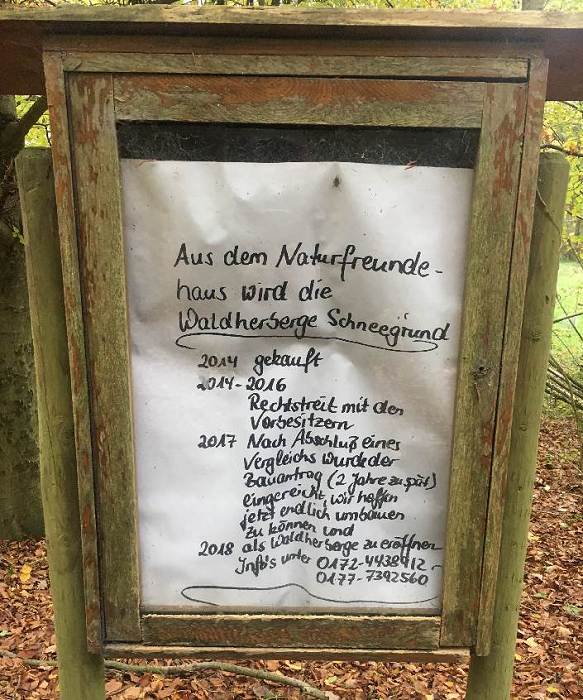 Aus dem Naturfreunde-
haus wird die
Waldherberge Schneegrund
2014 gekauft
2014-2016
Rechtstreit mit den
Vorbesitzern
2017 Nach Abschluß eines
Vergleichs wurde der
Bauantrag (2 Jahre zu spät)
eingereicht, wir hoffen
jetzt endlich umbauen
zu können und
2018 als Waldherberge zu eröffnen
Info's unter 0172-4438912 -
0177-7392560